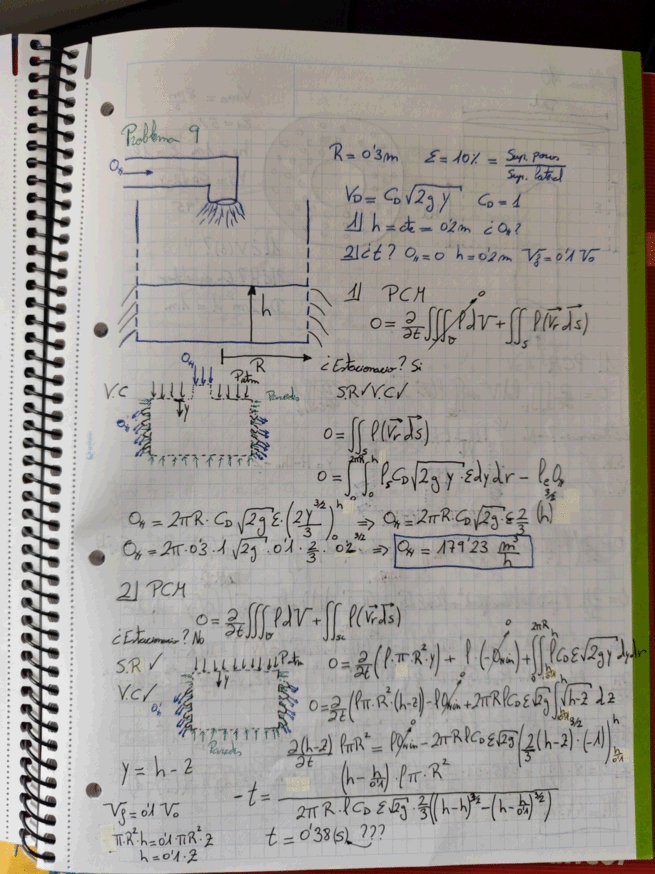 Problema 9
R = 0'3m   ε = 10% = Sup. poros / Sup. lateral
V_D = C_D √(2gy)   C_D = 1
1) h = cte = 0'2m ¿Q_H?
2) ¿t? Q_H = 0   h = 0'2m   V_f = 0'1 V_0
Q_H
h
R
1) PCM
0 = ∂/∂t ∭_V ρ dV + ∬_S ρ(V_r ds)
0
¿Estacionario? Si
S.R ✓ V.C ✓
V.C
Q_H
Patm
Paredes
y
0 = ∬_S ρ(V_r ds)
0 = ∫_0^2πR ∫_0^h ρ_s C_D √(2gy) · ε dy dr − ρ_e Q_H
Q_H = 2πR · C_D √(2g) ε · (2y^3/2 / 3)_0^h ⇒ Q_H = 2πR · C_D √(2g) · ε 2/3 (h)^3/2
Q_H = 2π · 0'3 · 1 √(2g) · 0'1 · 2/3 · 0'2^3/2 ⇒ Q_H = 179'23 m³/h
2) PCM
0 = ∂/∂t ∭_V ρ dV + ∬_sc ρ(V_r ds)
¿Estacionario? No
S.R ✓
V.C ✓
Patm
y
Paredes
0 = ∂/∂t (ρ · π · R² · y) + ρ · (−Q_min) + ∬ ρ C_D ε √(2gy) dy dr
0 = ∂/∂t (ρ π · R² · (h−z)) − ρQ_min + 2πR ρ C_D ε √(2g) ∫ √(h−z) dz
∂(h−z)/∂t ρπR² = ρQ_min − 2πR ρ C_D ε √(2g) (2/3 (h−z)^3/2 · (−1))
y = h − z
−t = (h − h/0'1) · ρπ · R² / 2πR · ρ C_D ε √(2g) · 2/3 ((h−h)^3/2 − (h − h/0'1)^3/2)
V_f = 0'1 V_0
π R² · h = 0'1 π R² · z
h = 0'1 · z
t = 0'38 (s). ???